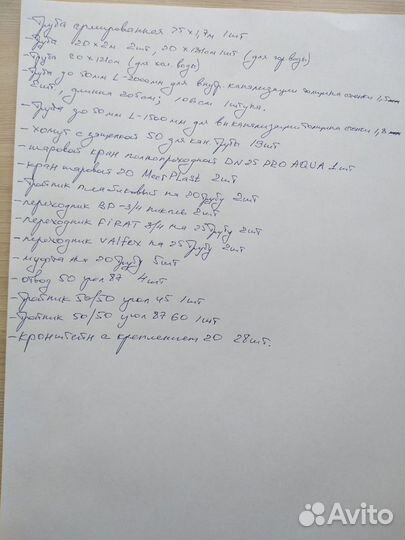 -Труба армированная 25х1,7м 1шт
-Труба 120х2м 2шт, 20х131см 1шт (для гор воды)
-Труба 20х121см (для хол. воды)
-Труба до 50мм L-2000мм для внутр. канализации толщина стенки 1,5мм
2шт, длинна 205см; 106см 1штука.
-Труба до 50мм L-1500мм для вн канализации толщина стенки 1,8мм
-хомут с защелкой 50 для кан труб 13шт
-шаровой кран полнопроходной DN25 PRO AQUA 1шт
-кран шаровой 20 MeerPlast 2шт
-Тройник пластиковый на 20 трубу 2шт
-переходник ВР-3/4 2шт
-переходник FiRAT 3/4 на 25 трубу 2шт
-переходник VAlfex на 25 трубу 2шт
-муфта на 20 трубу 5шт
-отвод 50 угол 87 4шт
-Тройник 50/50 угол 45 1шт
-Тройник 50/50 угол 87 60 1шт
-кронштейн с креплением 20 28шт.
Avito